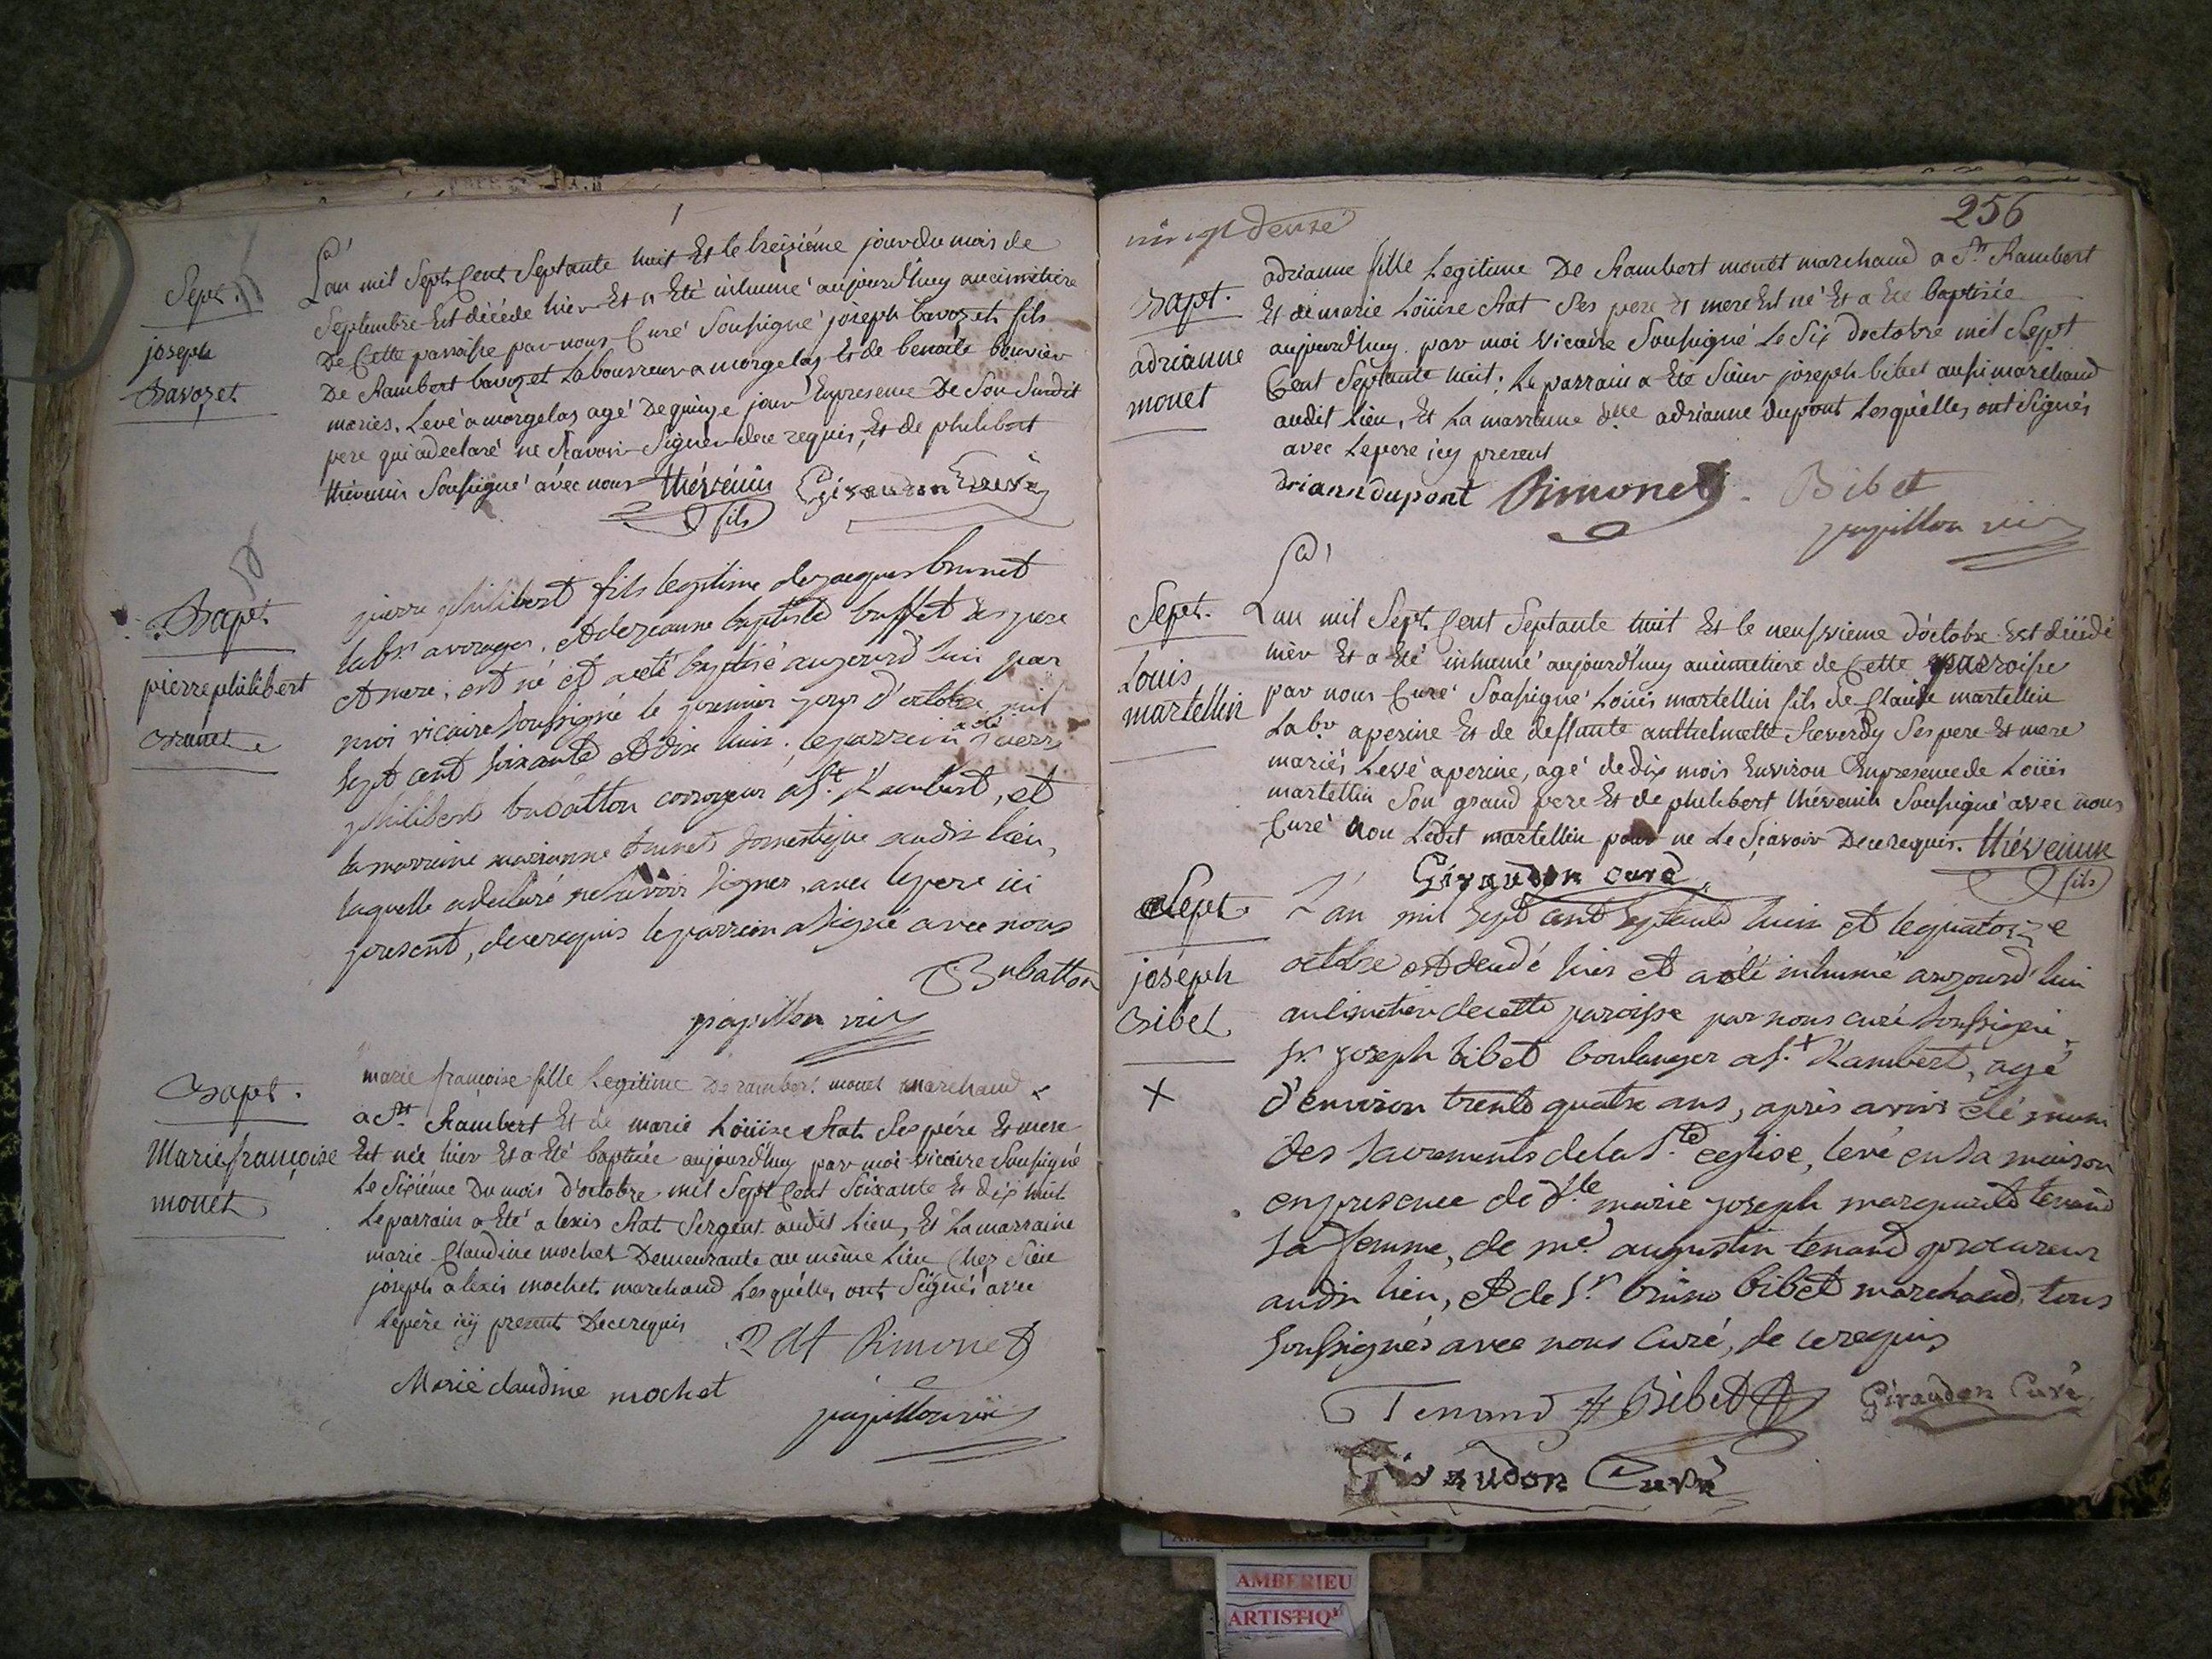 Sept.
joseph
Bavozet
L'an mil Sept Cent Septante huit Et le treisiéme jour du mois de
Septembre Est décédé hier Et a Eté inhumé aujourd'huy au cimetiere
De Cette parroisse par nous Curé Soussigné joseph bavozet fils
De Rambert bavozet Laboureur a morgelas Et de benoite bouvier
mariés. Levé a morgelas agé De quinze jour En presence De Son Surdit
pere qui a declaré ne Sçavoir Signer de ce requis, Et de philibert
thévenin Soussigné avec nous thévénin Giraudon Curé
fils
Bapt.
pierre philibert
Brunet
pierre philibert fils legitime de jacques brunet
labr. a vorages, et de jeanne baptiste buffet ses pere
et mere, est né et a eté baptisé aujourd'hui par
moi vicaire soussigné le premier jour d'octobre mil
sept cent soixante et dix huit. le parrein a été pierre
philibert bubatton corroyeur a St. Rambert, et
la marreine marianne brunet domestique audit lieu,
laquelle a declaré ne savoir signer, avec le pere ici
present, de ce requis le parrein a signé avec nous
Bubatton
papillon vic
Bapt.
Marie françoise
monet
marie françoise fille Legitime De rambert monet marchand
a St. Rambert Et de marie Loüise Rat Ses pére Et mere
Est née hier Et a Eté baptisée aujourd'huy par moi vicaire Soussigné
Le Sixiéme Du mois d'octobre mil Sept Cent Soixante Et dix huit
Le parrain a Eté alexis Rat Sergent audit Lieu, Et La marraine
marie Claudine mochet Demeurante au même Lieu Chez Sieu
joseph alexis mochet marchand Lesquélles ont Signés avec
Lepère icy present De ce requis
Rat Rimonet
Marie claudine mochet
papillon vic
256
vingt deuxe
Bapt.
adrianne
monet
adrianne fille Legitime De Rambert monet marchand a St. Rambert
Et de marie Loüise Rat Ses pere Et mere Est né Et a Eté baptisée
aujourd'huy par moi vicaire Soussigné Le Six D'octobre mil Sept
Cent Septante huit. Le parrain a Eté Sieur joseph bibet aussi marchand
audit Lieu, Et La marraine dlle adrianne dupont Lesquélles ont Signés
avec Lepere icy present
driann dupont Rimonet Bibet
papillon vic
Sept.
Louis
martellin
L'an mil Sept Cent Septante huit Et le neufvieme d'octobre Est décédé
hier Et a Eté inhumé aujourd'huy au cimetiere de Cette parroisse
par nous Curé Soussigné Louis martellin fils de Claude martellin
Labr. a perine Et de deffunte anthelmette Reverdy Ses pere Et mere
mariés Levé a perine, agé de dix mois Environ En presence de Loüis
martellin Son grand pere Et de philibert thévenin Soussigné avec nous
Curé non Ledit martellin pour ne Le Sçavoir De ce requis. thévenin
fils
Giraudon curé
Sept.
joseph
Bibet
L'an mil sept cent septante huit et le quatorze
octobre est decedé hier et a eté inhumé aujourd'hui
au cimetiere de cette paroisse par nous curé soussigné
sr. joseph bibet boulanger a St. Rambert, agé
d'environ trente quatre ans, aprés avoir eté muni
des sacrements de la Ste. eglise, levé en sa maison
en presence de dlle marie joseph marguerite tenand
sa femme, de me. augustin tenand procureur
audit lieu, et de sr. bruno bibet marchand, tous
soussignés avec nous curé, de ce requis
Tenand Bibet Giraudon Curé
Giraudon Curé
AMBERIEU
ARTISTIQ